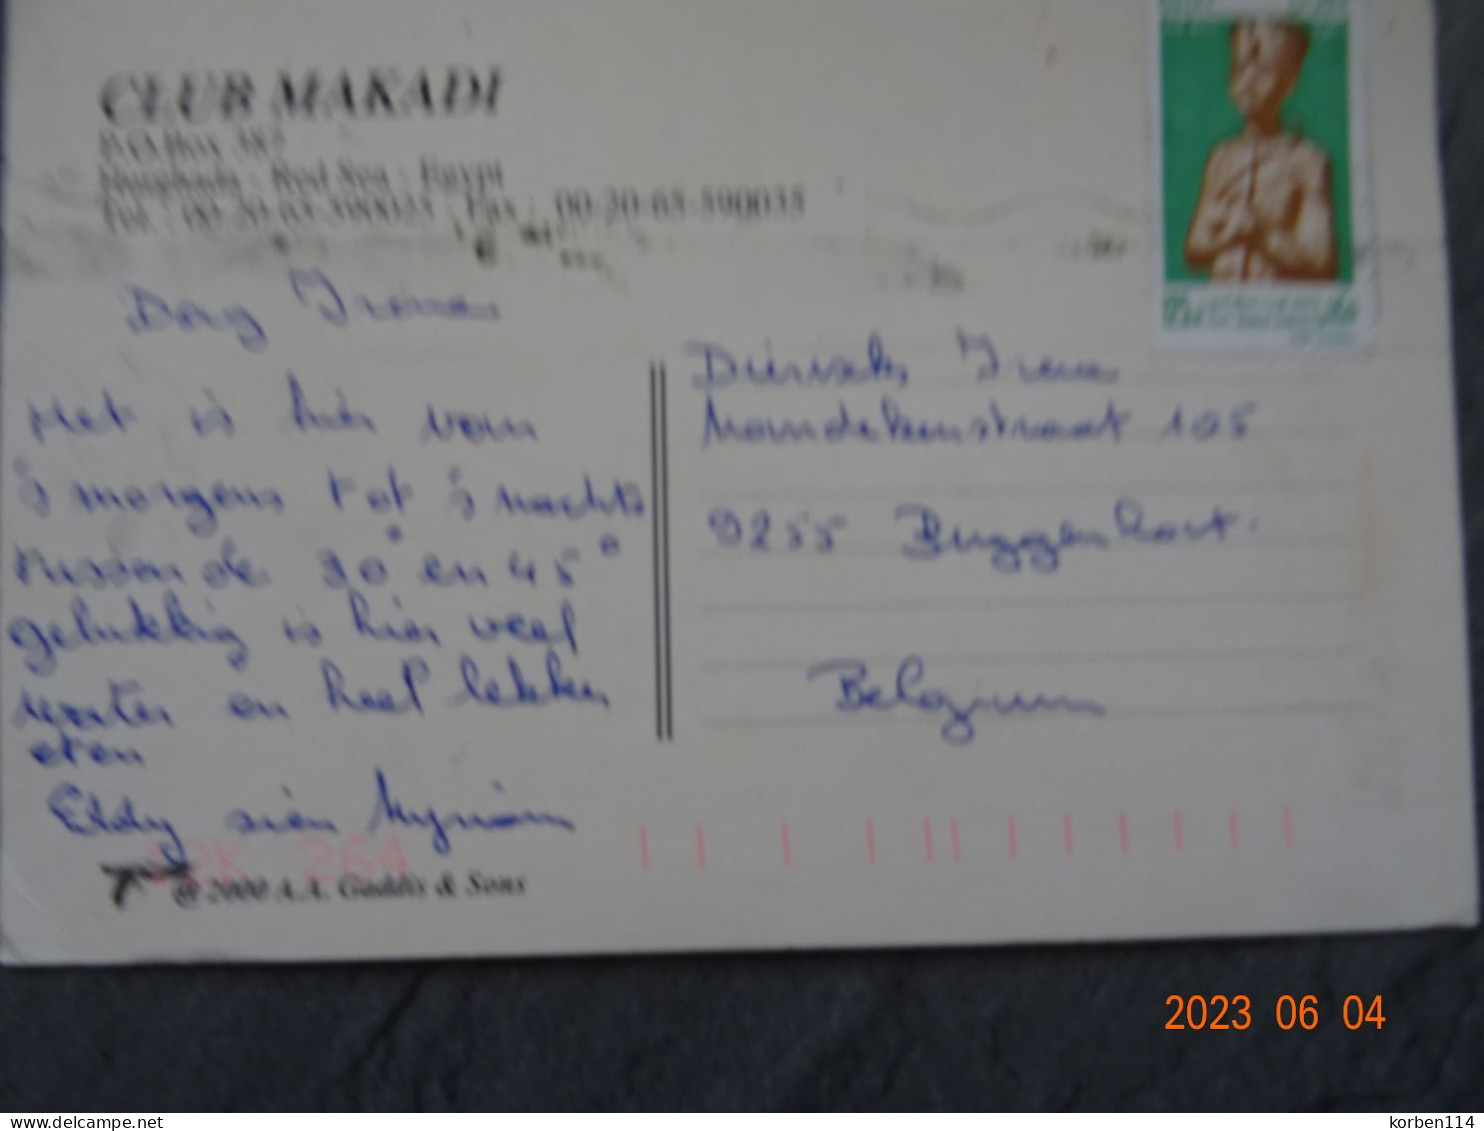 CLUB MAKADI
P.O.Box 387
Hurghada - Red Sea - Egypt
Tel : 00-20-65-590025 Fax : 00-20-65-590035
Dag Irene
Het is hier van
's morgens tot 's nachts
tussen de 30° en 45°
gelukkig is hier veel
water en heel lekker
eten
Eddy Myriam
@ 2000 A.A. Gaddis & Sons
Irene
105
9255 Buggenhout.
Belgium
2023 06 04
delcampe.net
korben114